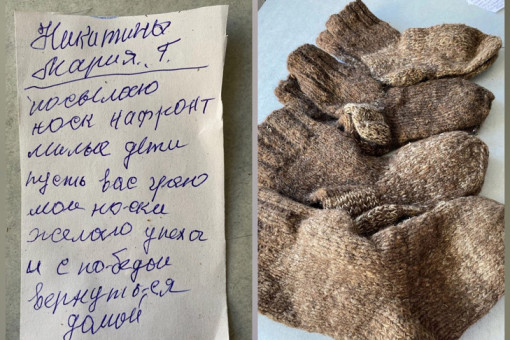 Никитины
Мария. Г.
посылаю
носк на фронт
милые дети
пусть вас греют
мои носки
желаю упеха
и с победы
вернуться
домой